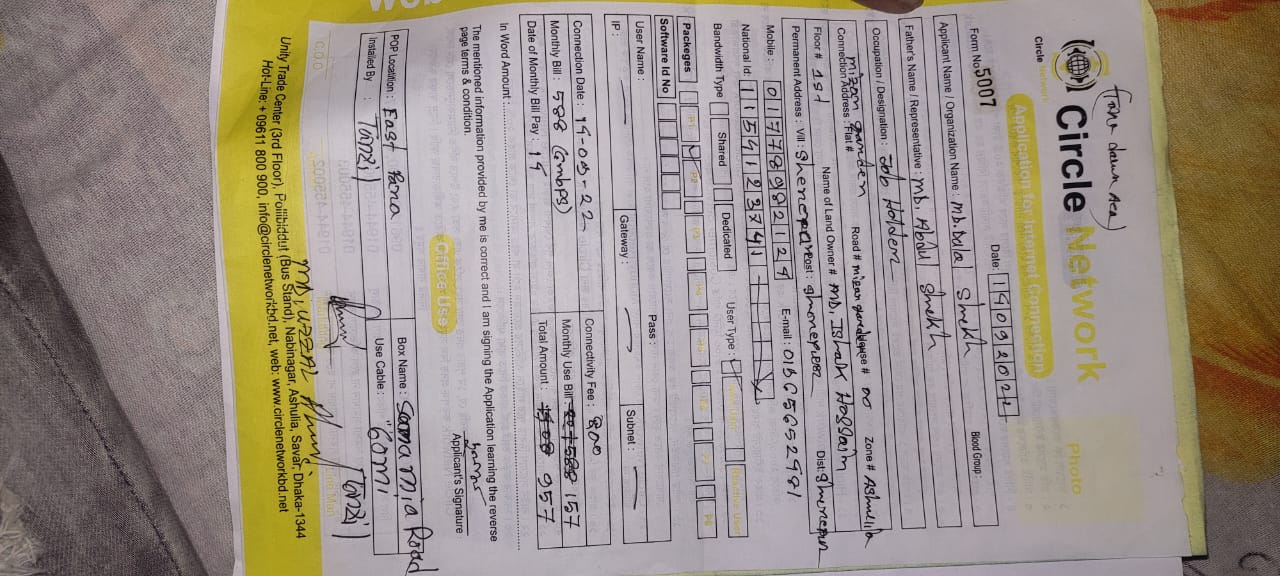 (Tana daun Area)
Circle Network
Circle Network
Application for Internet Connection
Photo
Form No. 5007
Date: 14092022
Blood Group :
Applicant Name / Organization Name : MD. Dalal Sheikh
Father's Name / Representative : MD. Abdul Sheikh
Occupation / Designation : Job Holder
mizan garden
Connection Address : Flat # Road # mizan garden House # no Zone # Ashulia
Floor # 1st Name of Land Owner # MD. Ishak Hossain
Permanent Address : Vill : Post : Dist:
Mobile : 01778992124 E-mail : 01665652981
National Id: 1154123741
Bandwidth Type Shared Dedicated User Type :
Packeges P1 P2 P3 P4 P5 P6 P7 P8
Software Id No
User Name : Pass :
IP : Gateway : Subnet :
Connection Date : 14-09-22
Connectivity Fee : 800
Monthly Bill : 588 (6mbps)
Monthly Use Bill 157
Date of Monthly Bill Pay : 14
Total Amount : 957
In Word Amount :
The mentioned information provided by me is correct and I am signing the Application learning the reverse
page terms & condition.
Applicant's Signature
Office Use
POP Location : East Para
Box Name : Sonamia Road
Installed By : Tanzil
Use Cable : 60mi
Tanzil
C.O.O
MD. UZZAL
Unity Trade Center (3rd Floor), Pollibiddut (Bus Stand), Nabinagar, Ashulia, Savar, Dhaka-1344
Hot-Line: + 09611 800 900, info@circlenetworkbd.net, web: www.circlenetworkbd.net